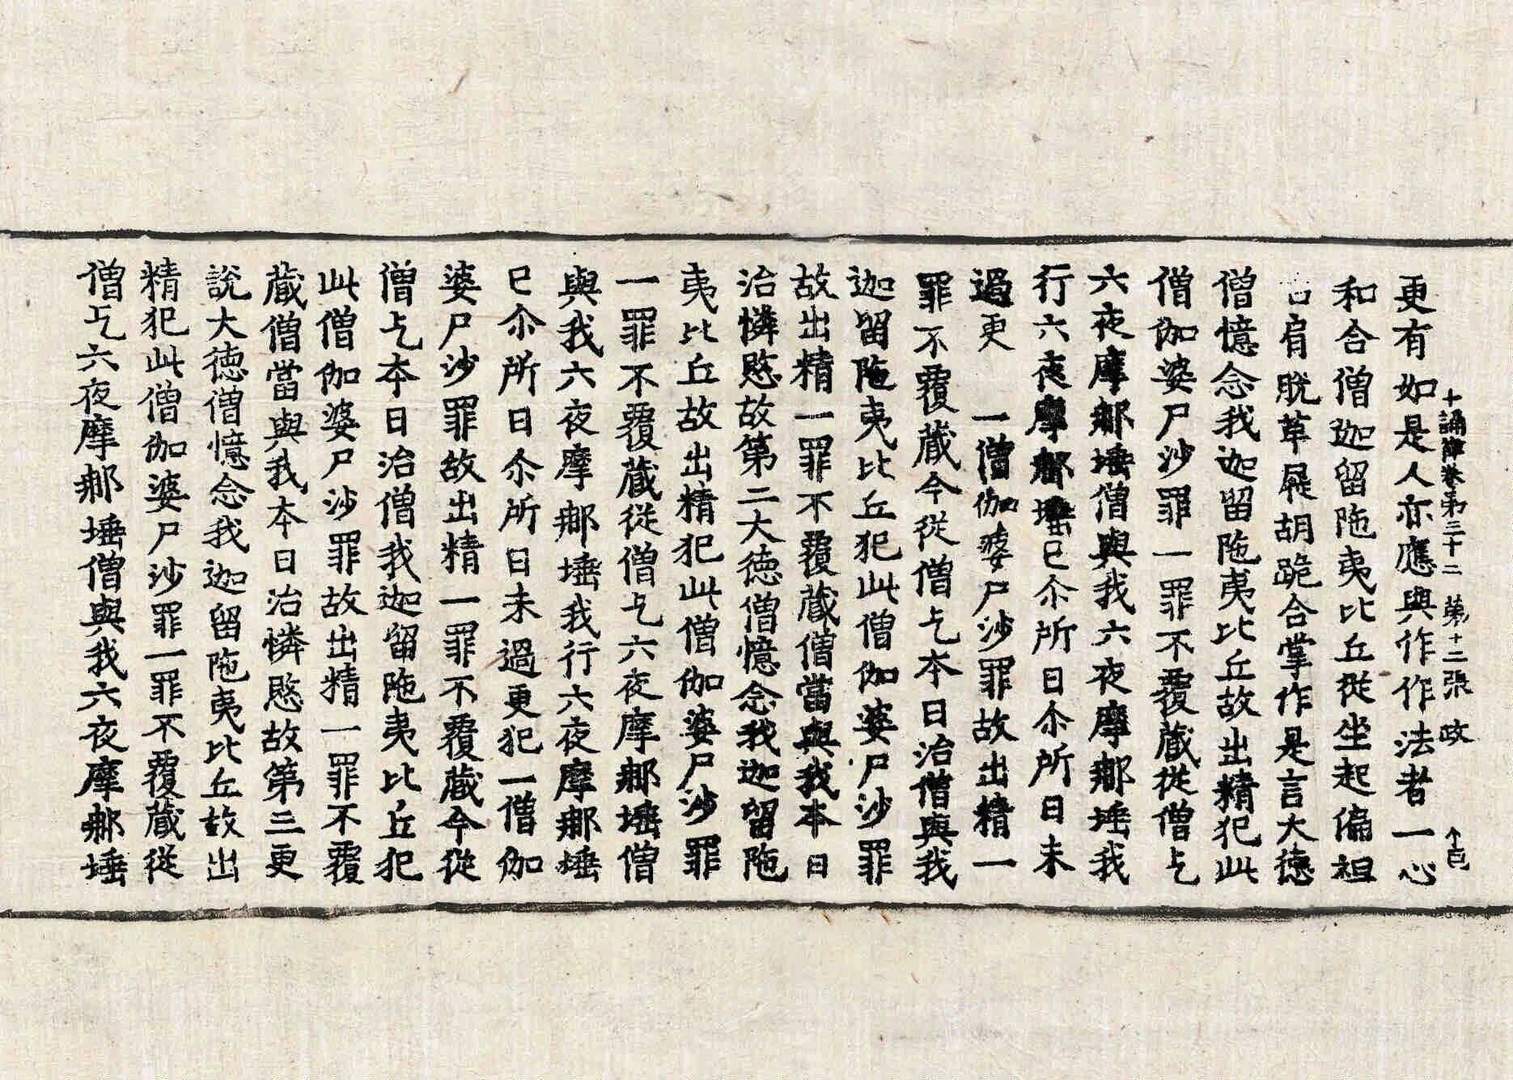 更有如是人亦應與作作法者一心
十誦律卷第三十二 第十二張 政
和合僧迦留陁夷比丘從坐起偏袒
右肩脫草屣胡跪合掌作是言大德
僧憶念我迦留陁夷比丘故出精犯此
僧伽婆尸沙罪一罪不覆藏從僧乞
六夜摩那埵僧與我六夜摩那埵我
行六夜摩那埵巳尒所日尒所日未
過更 一僧伽婆尸沙罪故出精一
罪不覆藏今從僧乞本日治僧與我
迦留陁夷比丘犯此僧伽婆尸沙罪
故出精一罪不覆藏僧當與我本日
治憐愍故第二大德僧憶念我迦留陁
夷比丘故出精犯此僧伽婆尸沙罪
一罪不覆藏從僧乞六夜摩那埵僧
與我六夜摩那埵我行六夜摩那埵
巳尒所日尒所日未過更犯一僧伽
婆尸沙罪故出精一罪不覆藏今從
僧乞本日治僧我迦留陁夷比丘犯
此僧伽婆尸沙罪故出精一罪不覆
藏僧當與我本日治憐愍故第三更
說大德僧憶念我迦留陁夷比丘故出
精犯此僧伽婆尸沙罪一罪不覆藏從
僧乞六夜摩那埵僧與我六夜摩那埵